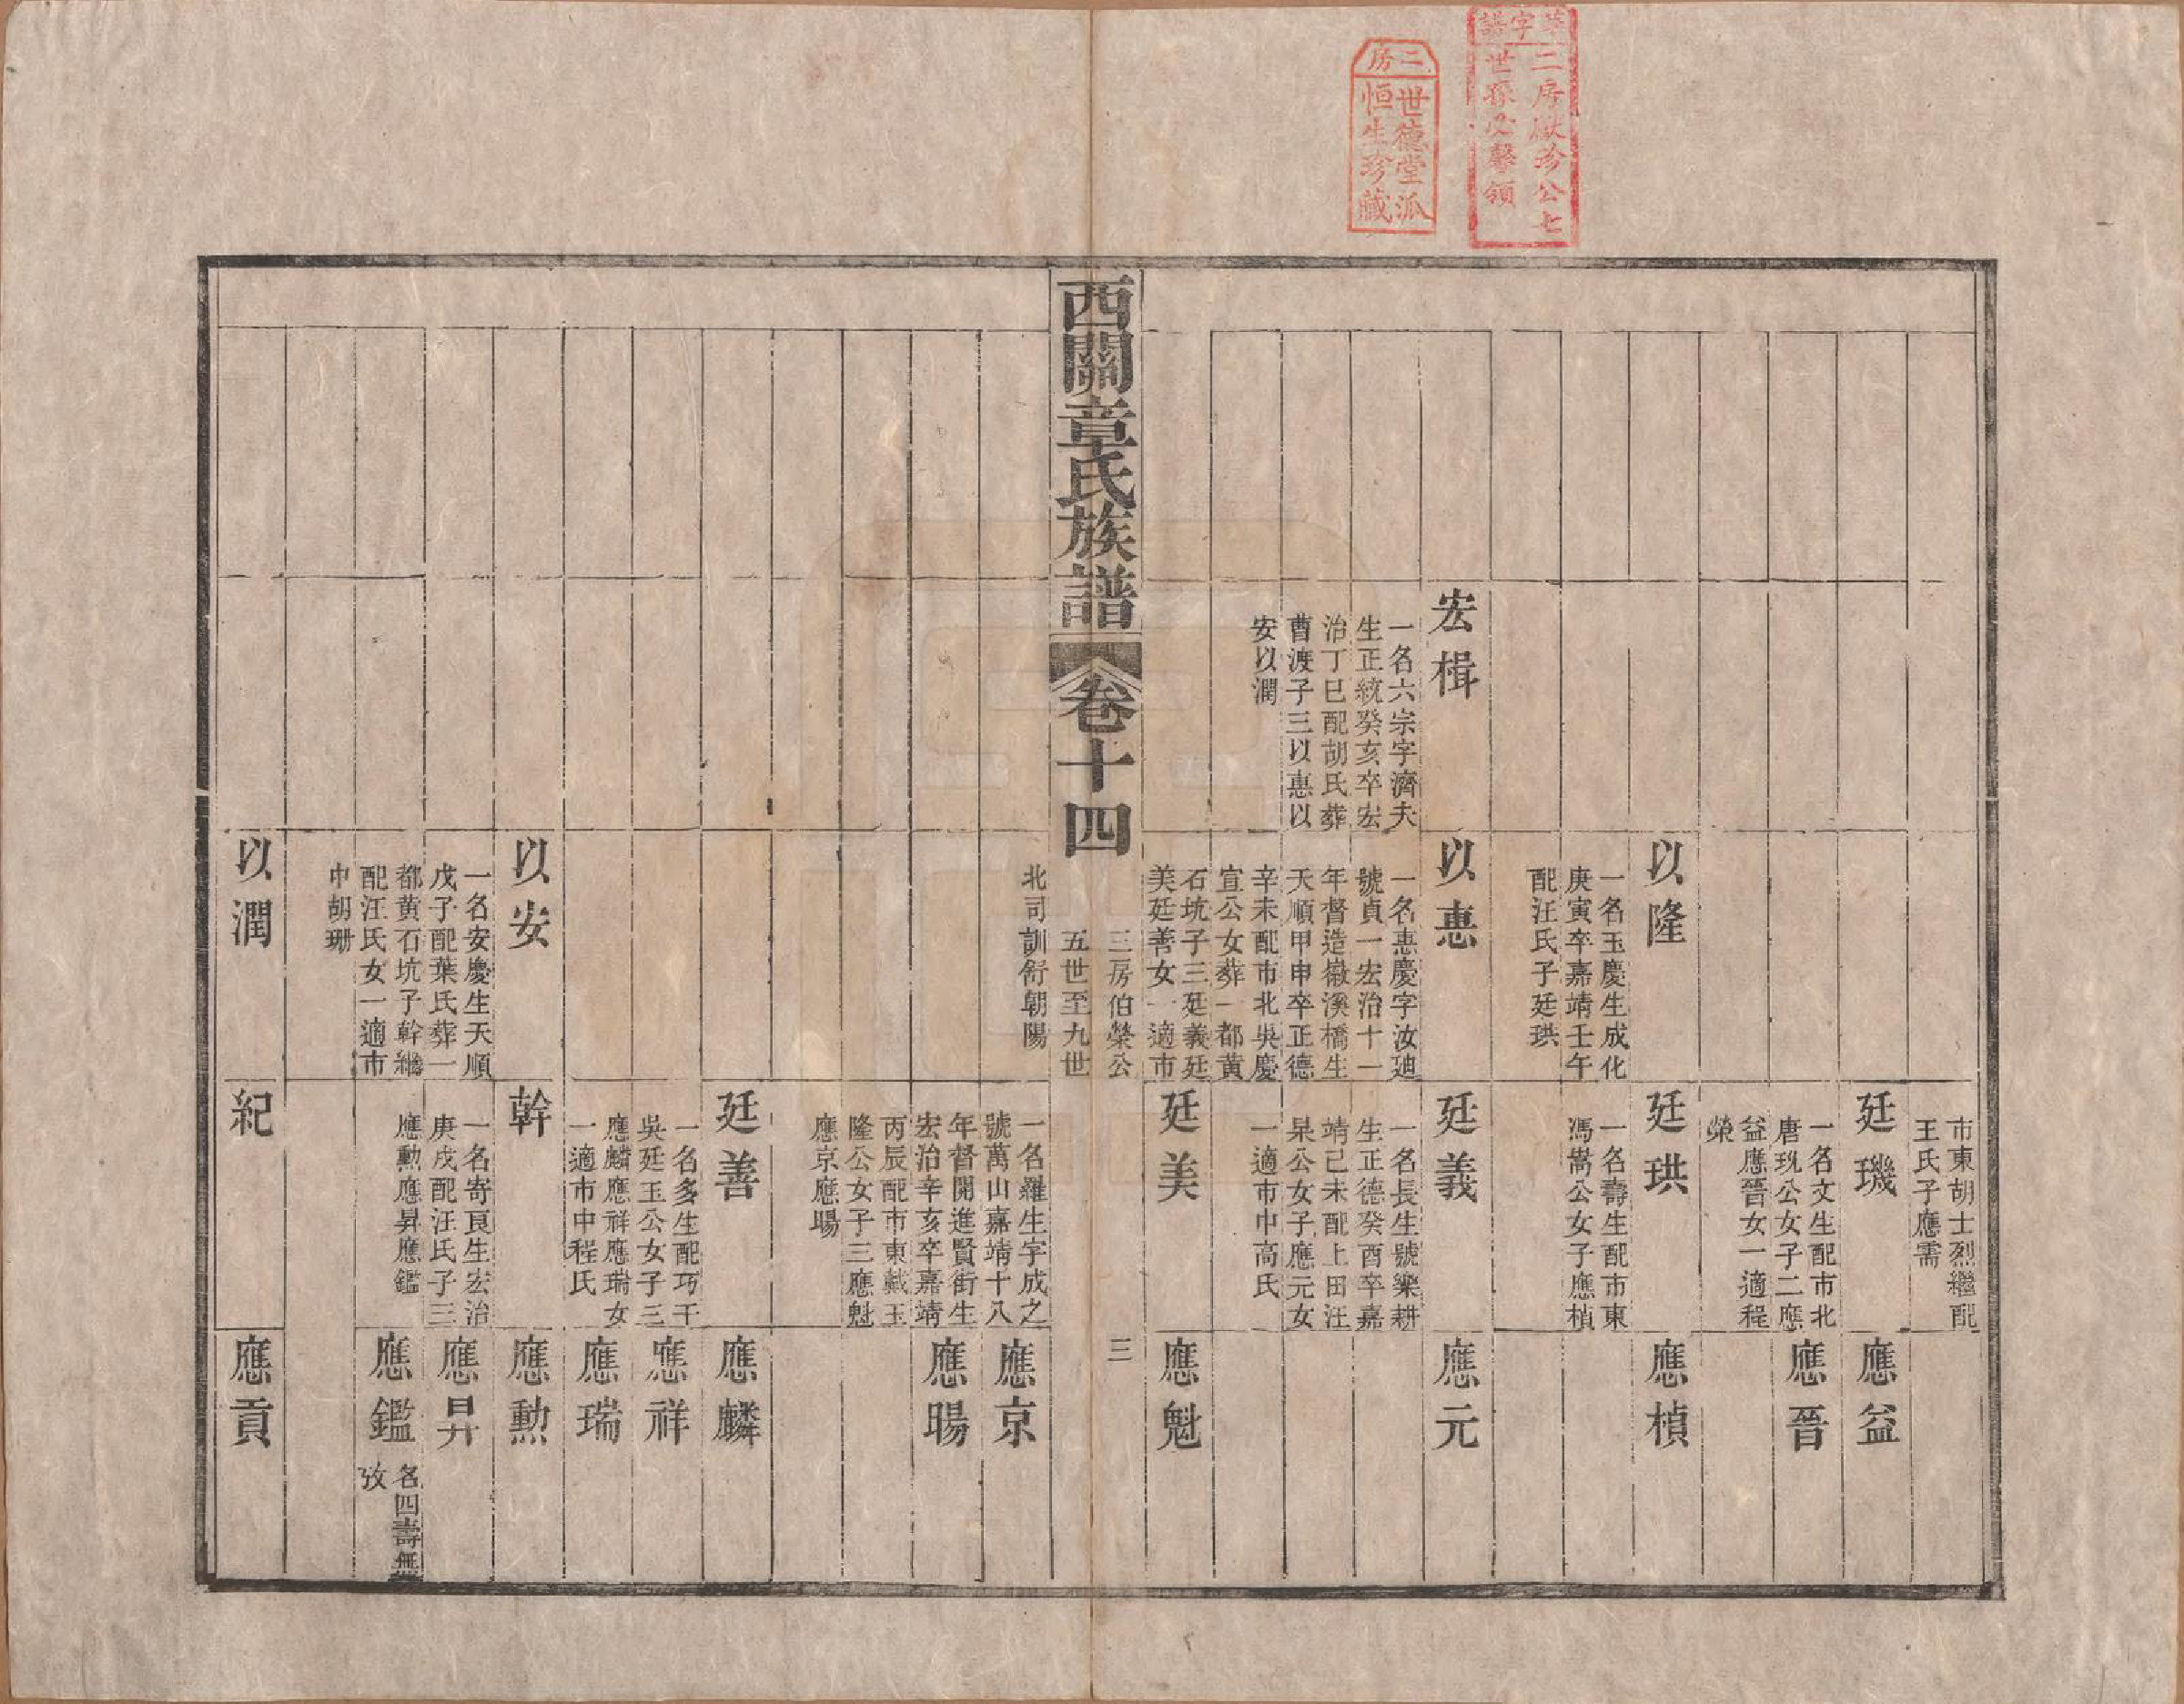 三房
世德堂派
恒生珍藏
字譜
二房
珍公七
世孫
領
市東胡士烈繼配
王氏子應需
廷璣
一名文生配市北
唐珗公女子二應
益應晉女一適程
榮
應益
應晉
以隆
一名玉慶生成化
庚寅卒嘉靖壬午
配汪氏子廷珙
廷珙
一名壽生配市東
馮嵩公女子應楨
應楨
宏楫
一名六宗字濟夫
生正統癸亥卒宏
治丁巳配胡氏葬
曹渡子三以惠以
安以潤
以惠
一名惠慶字汝迪
號貞一宏治十一
年督造徽溪橋生
天順甲申卒正德
辛未配市北吳慶
宣公女葬一都黃
石坑子三廷義廷
美廷善女一適市
北司訓舒朝陽
廷義
一名長生號樂耕
生正德癸酉卒嘉
靖己未配上田汪
杲公女子應元女
一適市中高氏
應元
廷美
一名羅生字成之
號萬山嘉靖十八
年督開進賢街生
宏治辛亥卒嘉靖
丙辰配市東戴玉
隆公女子三應魁
應京應暘
應魁
西關章氏族譜
卷十四
三房伯榮公
五世至九世
三
應京
應暘
廷善
一名多生配巧干
吳廷玉公女子三
應麟應祥應瑞女
一適市中程氏
應麟
應祥
應瑞
以安
一名安慶生天順
戊子配葉氏葬一
都黃石坑子幹繼
配汪氏女一適市
中胡珊
幹
一名寄良生宏治
庚戌配汪氏子三
應勳應昇應鑑
應勳
應昇
應鑑
名四壽無
攷
以潤
紀
應貢